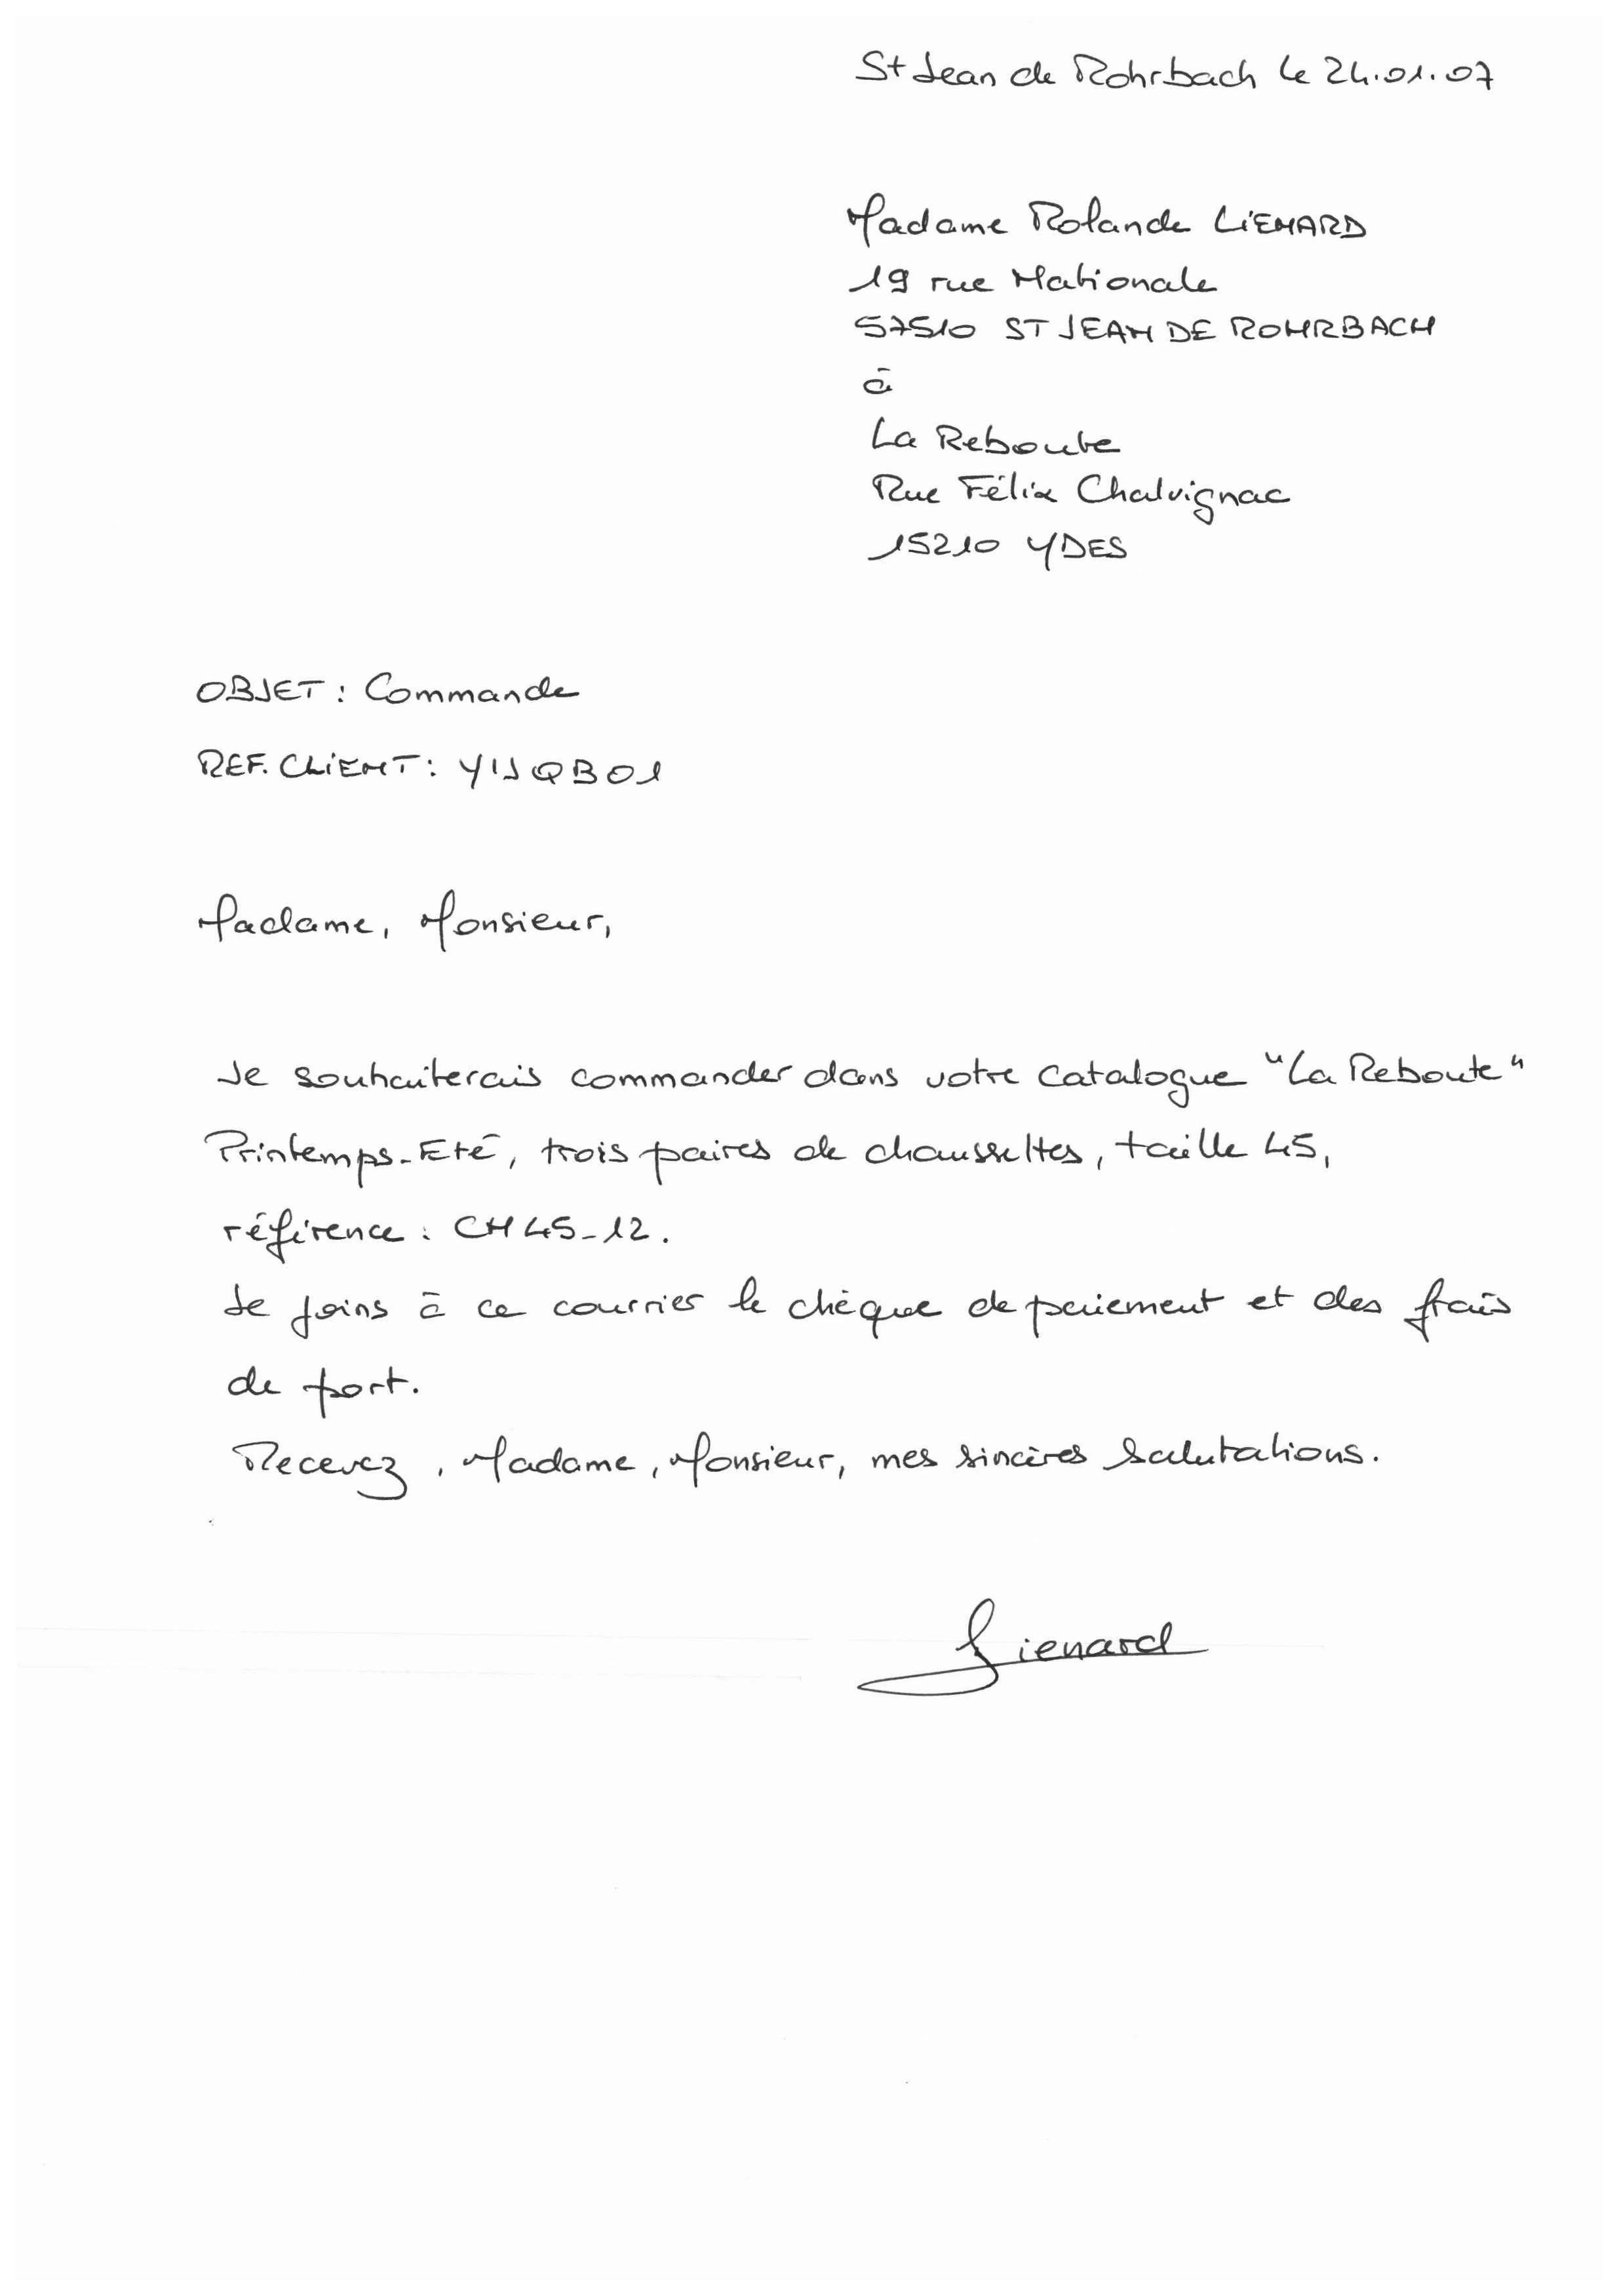 St Jean de Rohrbach le 24.01.07
Madame Rolande LIENARD
19 rue Nationale
57510 ST JEAN DE ROHRBACH
à
La Reboute
Rue Félix Chalvignac
15210 YDES
OBJET : Commande
REF. CLIENT :
Madame, Monsieur,
Je souhaiterais commander dans votre catalogue "La Reboute"
Printemps-Eté, trois paires de chaussettes, taille 45,
référence : CH45-12.
Je joins à ce courrier le chèque de paiement et des frais
de port.
Recevez, Madame, Monsieur, mes sincères salutations.
Lienard